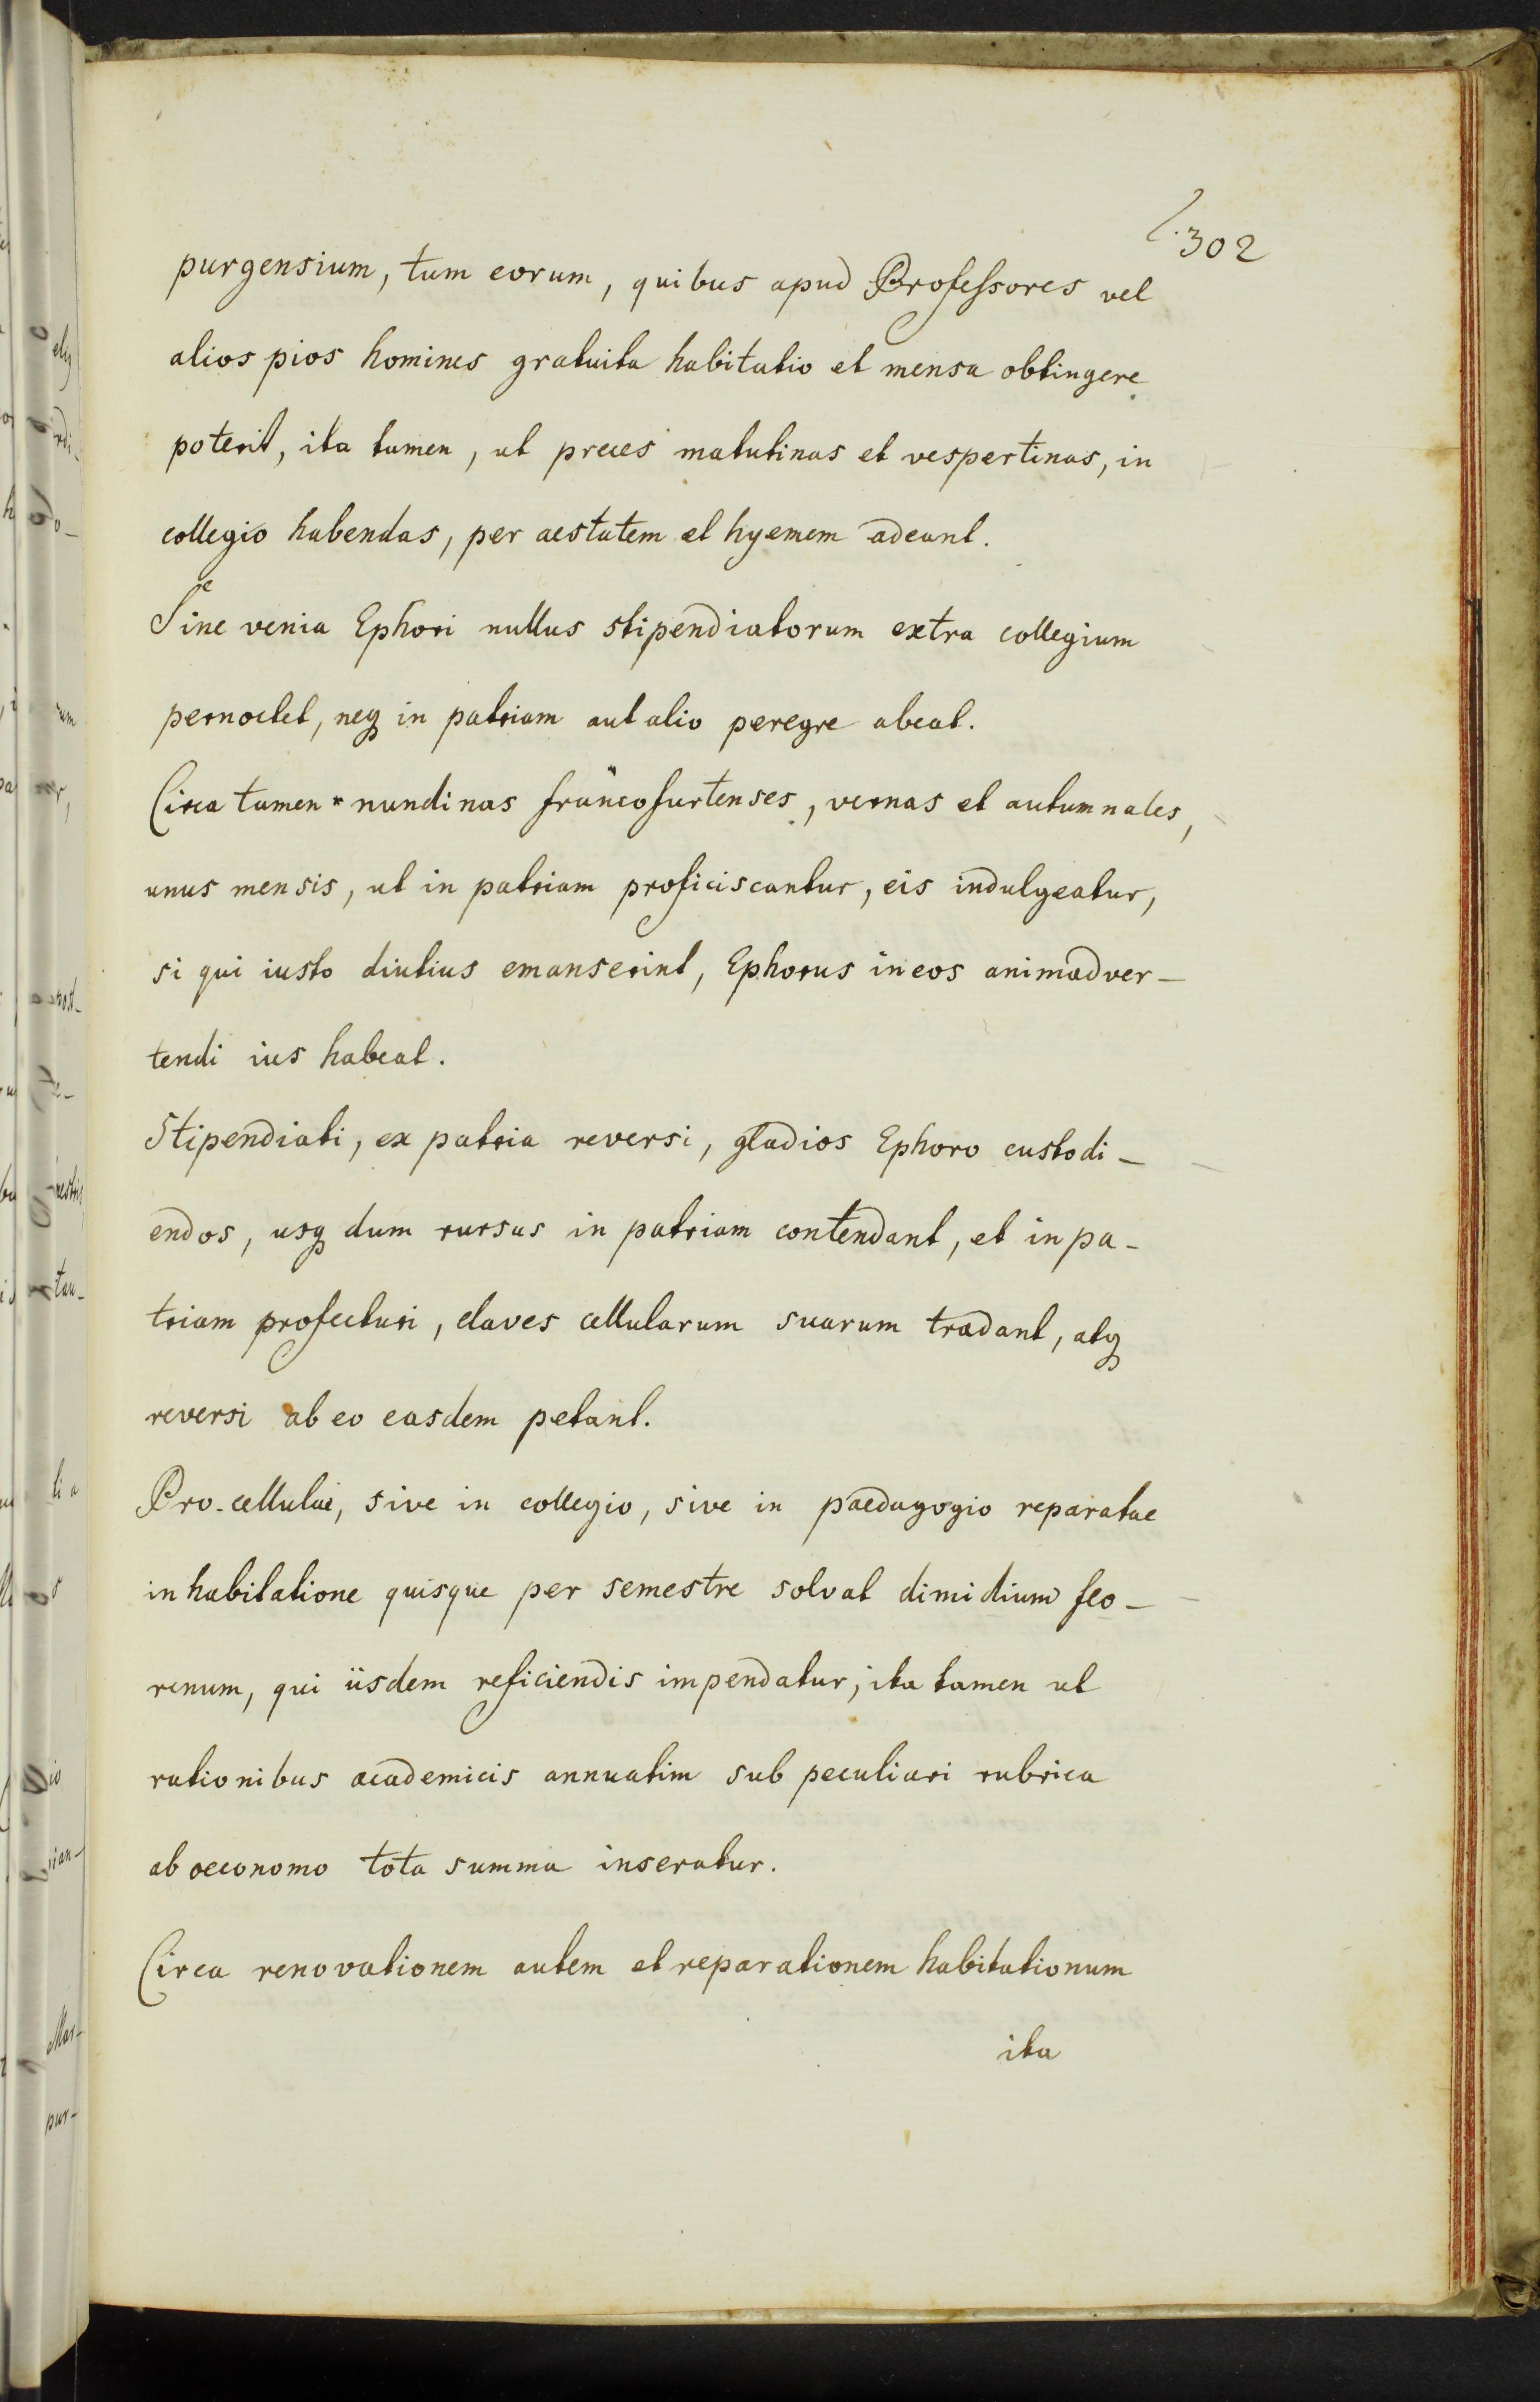 302
purgensium, tum eorum, quibus apud Professores vel
alios pios homines gratuita habitatio et mensa obtingere
poterit, ita tamen, ut preces matutinas et vespertinas, in
collegio habendas, per aestatem et hyemem adeant.
Sine venia Ephori nullus stipendiatorum extra collegium
pernoctet, neq in patriam aut alio peregre abeat.
Circa tamen nundinas francofurtenses, vernas et autumnales,
unus mensis, ut in patriam proficiscantur, eis indulgeatur,
si qui iusto diutius emanserint, Ephorus in eos animadver-
tendi ius habeat.
Stipendiati, ex patria reversi, gladios Ephoro custodi-
endos, usq dum rursus in patriam contendant, et in pa-
triam profecturi, claves cellularum suarum tradant, atq
reversi ab eo easdem petant.
Pro cellulae, sive in collegio, sive in paedagogio reparatae
inhabitatione quisque per semestre solvat dimidium flo-
renum, qui iisdem reficiendis impendatur, ita tamen ut
rationibus academicis annuatim sub peculiari rubrica
ab oeconomo tota summa inseratur.
Circa renovationem autem et reparationem habitationum
ita